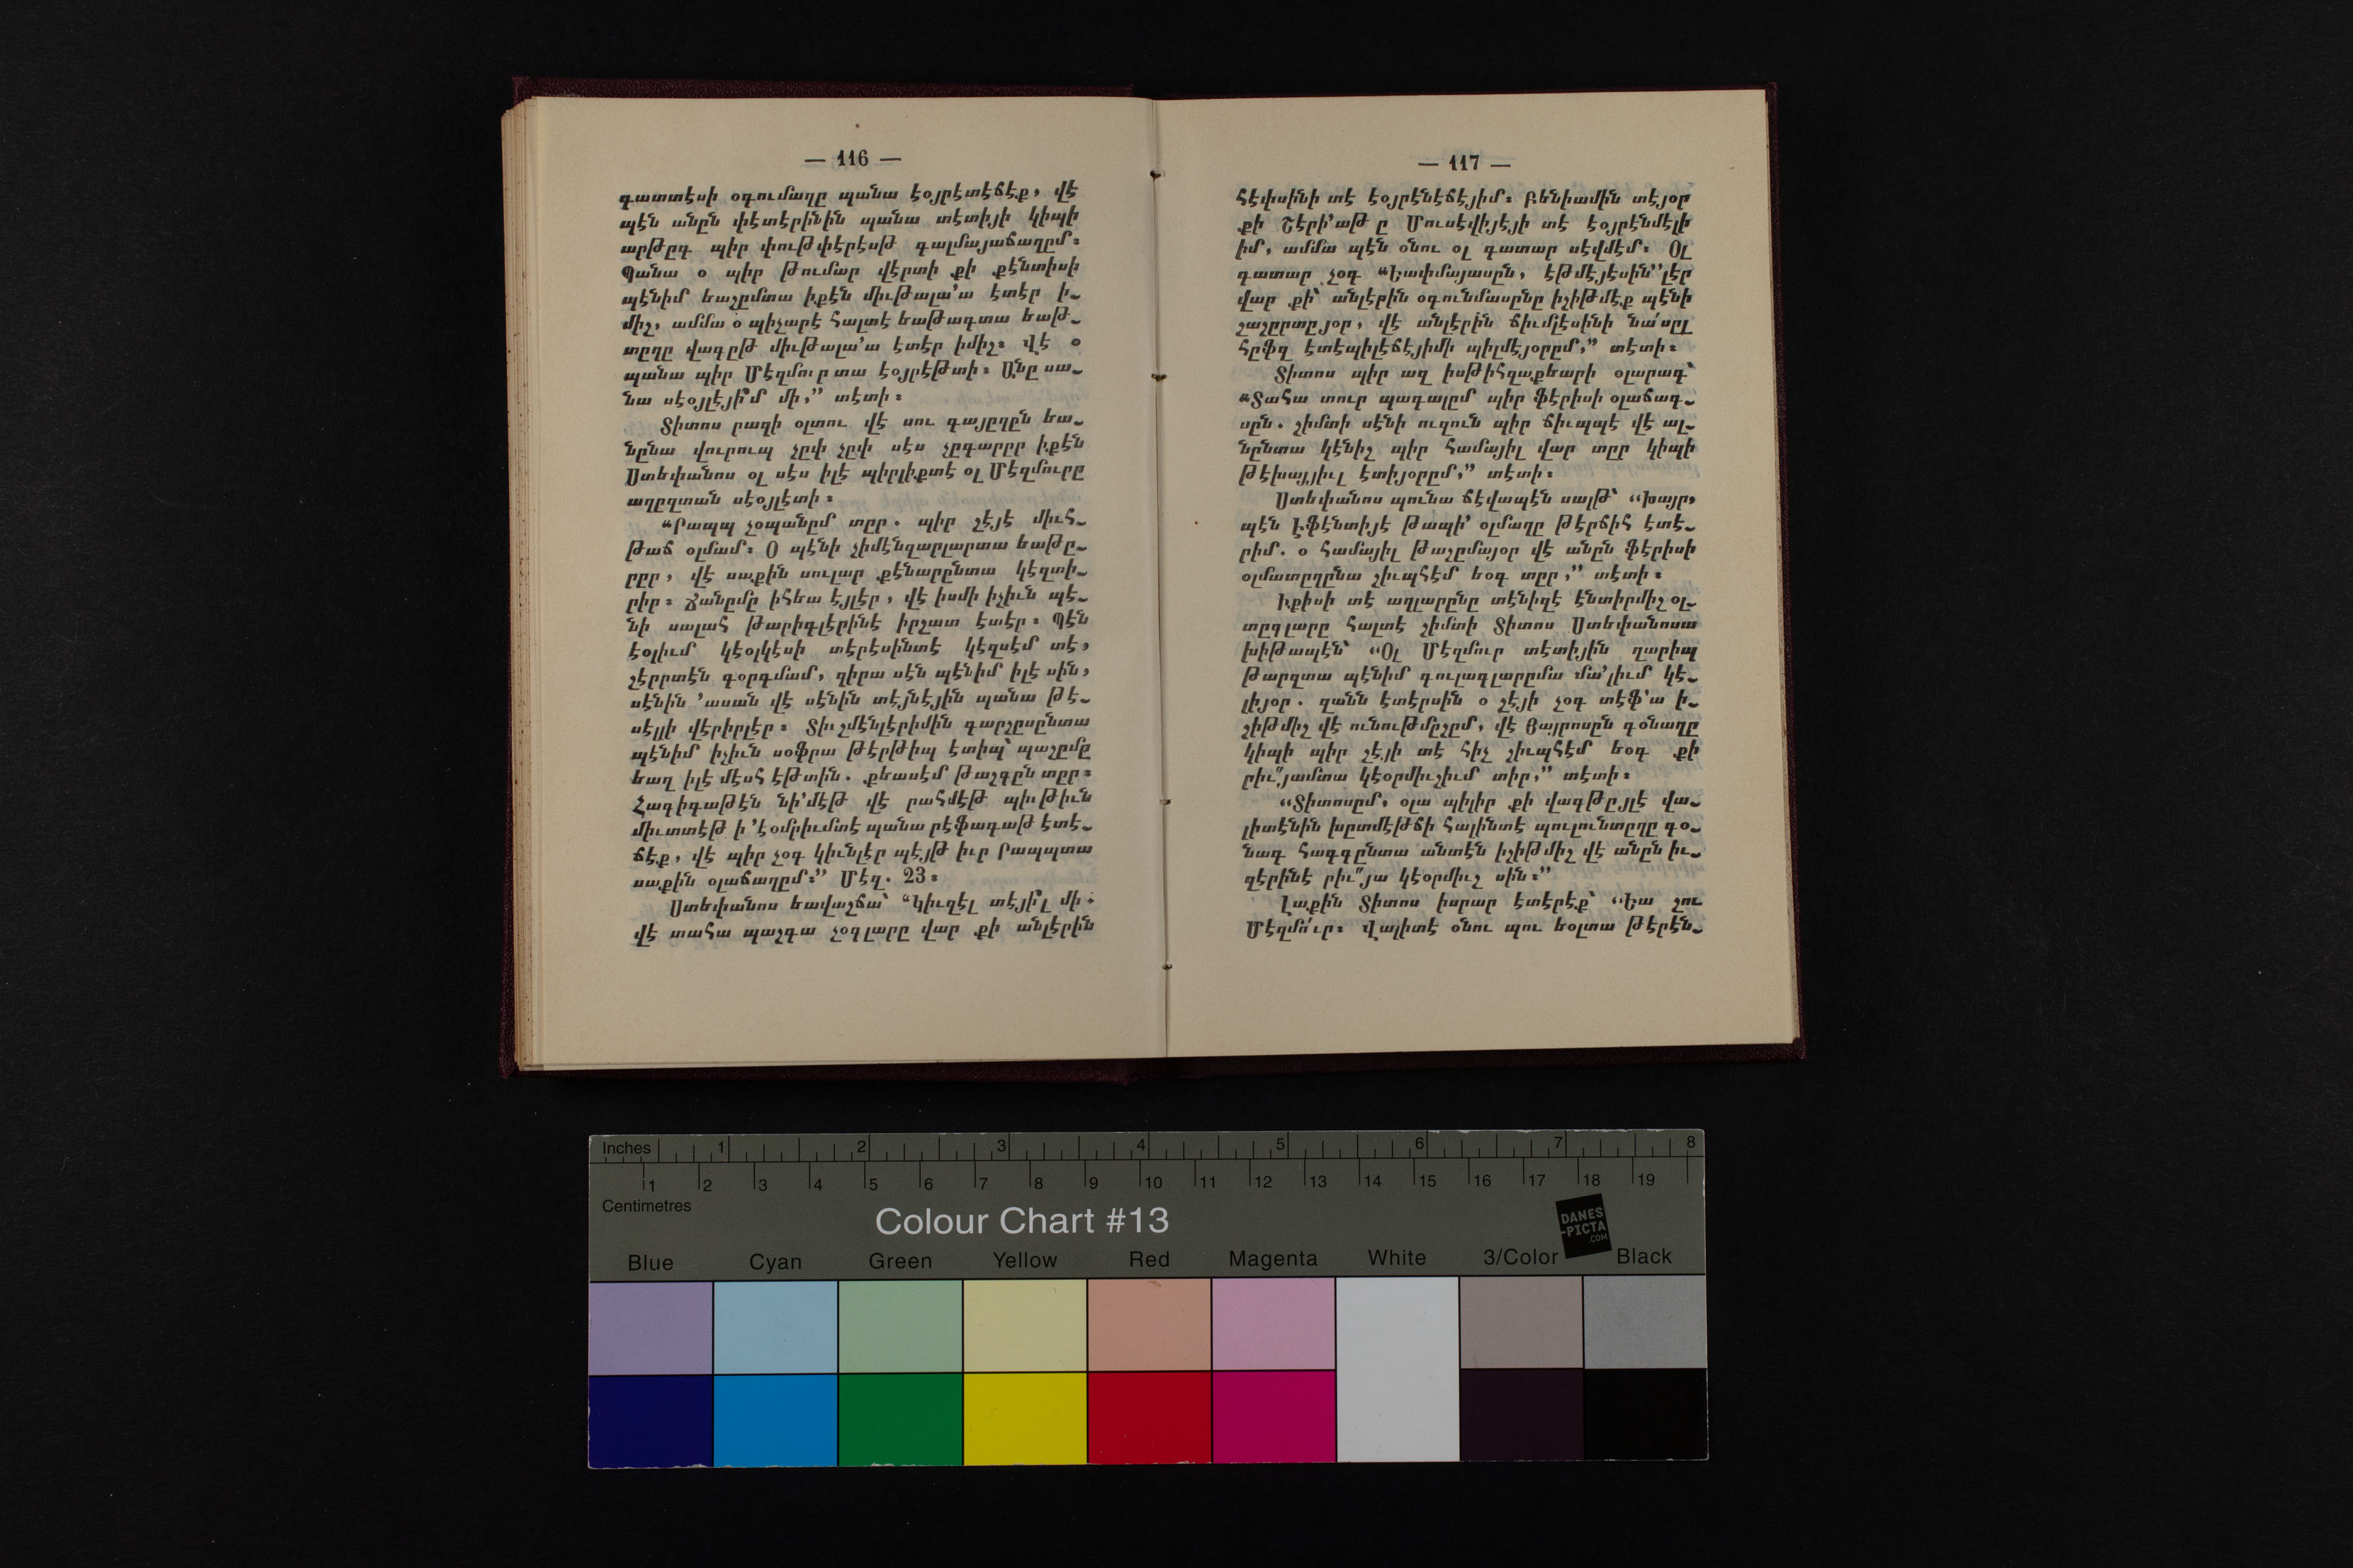 — 116 —
գատտէսի օգումաղը պանա էօյրէտէճէք, վէ
պէն անըն փէտէրինին պանա տէտիյի կիպի
արթըգ պիր փութփէրէսթ գալմայաճաղըմ։
Պանա օ պիր թումար վէրտի քի քէնտիսի
պէնիմ եաշըմտա իքէն միւթալա՚ա էտէր ի֊
միշ, ամմա օ պիչարէ հալտէ եաթագտա եաթ֊
տըղը վագըթ միւթալա՚ա էտէր իմիշ։ Վէ օ
պանա պիր Մէզմուր տա էօյրէթտի։ Անը սա֊
նա սէօյլէյի՞մ մի,” տէտի։
Տիտոս րազի օլտու վէ սու գայըղըն եա֊
նընա վուրուպ չըփ չըփ սէս չըգարըր իքէն
Ստեփանոս օլ սէս իլէ պիրլիքտէ օլ Մէզմուրը
աղըզտան սէօյլէտի։
“Րապպ չօպանըմ տըր. պիր շէյէ միւհ֊
թաճ օլմամ։ Օ պէնի չիմէնզարլարտա եաթը֊
րըր, վէ սաքին սուլար քէնարընտա կէզտի֊
րիր։ Ճանըմը իհեա էյլէր, վէ իսմի իչիւն պէ֊
նի սալահ թարիգլէրինէ իրշատ էտէր։ Պէն
էօլիւմ կէօլկէսի տէրէսինտէ կէզսէմ տէ,
շէրրտէն գօրգմամ, զիրա սէն պէնիմ իլէ սին,
սէնին ՚ասան վէ սէնին տէյնէյին պանա թէ֊
սէլլի վէրիրլէր։ Տիւշմէնլէրիմին գարշըսընտա
պէնիմ իչիւն սօֆրա թէրթիպ էտիպ՝ պաշըմը
եաղ իլէ մէսհ էթտին. քեասէմ թաշգըն տըր։
Հագիգաթէն նի՚մէթ վէ րահմէթ պիւթիւն
միւտտէթ ի ՚էօմրիւմտէ պանա րէֆագաթ էտէ֊
ճէք, վէ պիր չօգ կիւնլէր պէյթ իւր Րապպտա
սաքին օլաճաղըմ։” Մէզ. 23։
Ստեփանոս եավաշճա՝ “Կիւզէլ տէյի՞լ մի։
վէ տահա պաշգա չօգլարը վար քի անլէրին
— 117 —
հէփսինի տէ էօյրէնէճէյիմ։ Բենիամին տէյօր
քի Շէրի՚աթ ը Մուսէվիյէյի տէ էօյրէնմէլի
իմ, ամմա պէն օնու օլ գատար սէվմէմ։ Օլ
գատար չօգ “Եափմայասըն, էթմէյէսին’’լէր
վար քի՝ անլէրին օգունմասընը իշիթմէք պէնի
շաշըրտըյօր, վէ անլէրին ճիւմլէսինի նա՛սըլ
հըֆզ էտէպիլէճէյիմի պիլմէյօրըմ,” տէտի։
Տիտոս պիր ազ իսթիհզաքեարի օլարագ՝
“Տահա տուր պագալըմ պիր ֆէրիսի օլաճագ֊
սըն. շիմտի սէնի ուզուն պիր ճիւպպէ վէ ալ֊
նընտա կէնիշ պիր համայիլ վար տըր կիպի
թէխայյիւլ էտիյօրըմ,” տէտի։
Ստեփանոս պունա ճէվապէն սալթ՝ “Խայր,
պէն Էֆէնտիյէ թապի՚ օլմաղը թէրճիհ էտէ֊
րիմ. օ համայիլ թաշըմայօր վէ անըն ֆէրիսի
օլմատըղընա շիւպհէմ եօգ տըր,” տէտի։
Իքիսի տէ աղլարընը տէնիզէ էնտիրմիշ օլ֊
տըգլարը հալտէ շիմտի Տիտոս Ստեփանոսա
խիթապէն՝ “Օլ Մէզմուր տէտիյին ղարիպ
թարզտա պէնիմ գուլագլարըմա մա՚լիւմ կէ֊
լիյօր. զանն էտէրսին օ շէյի չօգ տէֆ՚ա ի֊
շիթմիշ վէ ունութմըշըմ, վէ Յայրոսըն գօնաղը
կիպի պիր շէյի տէ հիչ շիւպհէմ եօգ քի
րիւ՞յամտա կէօրմիւշիւմ տիր,” տէտի։
“Տիտոսըմ, օլա պիլիր քի վագթըյլէ վա֊
լիտէնին խըտմէթճի հալինտէ պուլունտըղը գօ֊
նագ հագգընտա անտէն իշիթմիշ վէ անըն իւ֊
զէրինէ րիւ՞յա կէօրմիւշ սին։”
Լաքին Տիտոս իսրար էտէրէք՝ “Եա շու
Մէզմո՛ւր։ Վալիտէ օնու պու եօլտա թէրէն֊
Inches 1 2 3 4 5 6 7 8
1 2 3 4 5 6 7 8 9 10 11 12 13 14 15 16 17 18 19
Centimetres
Colour Chart #13
DANES
-PICTA
.COM
Blue Cyan Green Yellow Red Magenta White 3/Color Black